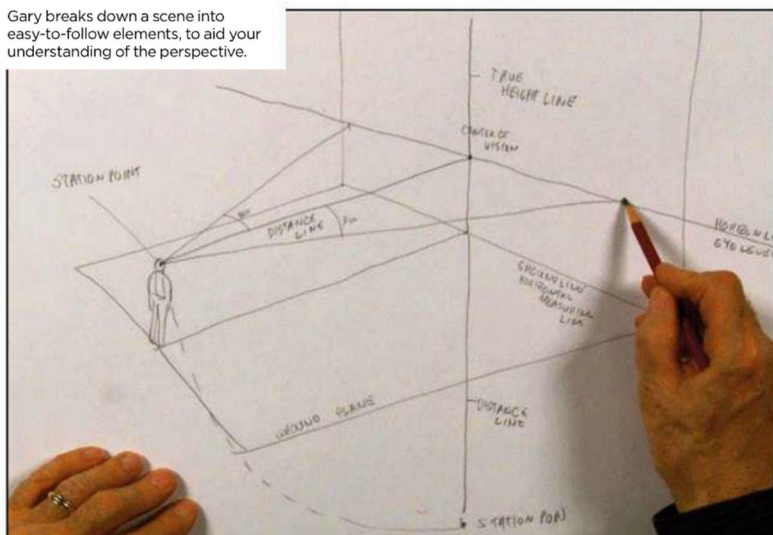 Gary breaks down a scene into
easy-to-follow elements, to aid your
understanding of the perspective.
TRUE
HEIGHT LINE
CENTER OF
VISION
STATION POINT
DISTANCE
LINE
HORIZON LI
EYE LEVEL
GROUND LINE
HORIZONTAL
MEASURING
LINE
GROUND PLANE
DISTANCE
LINE
STATION POIN